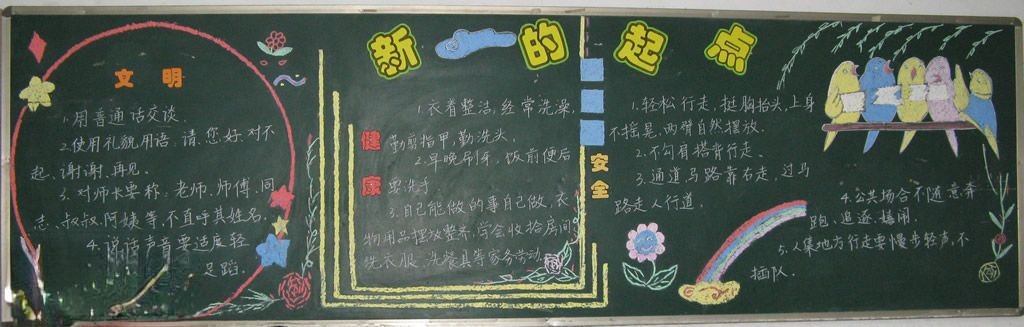 新的起点
文明
1.用普通话交谈.
2.使用礼貌用语:请、您好、对不
起、谢谢、再见.
3.对师长要称:老师、师傅、同
志、叔叔、阿姨等,不直呼其姓名.
4.说话声音要适度、轻
健康
1.衣着整洁,经常洗澡,
勤剪指甲,勤洗头.
2.早晚刷牙,饭前便后
要洗手
3.自己能做的事自己做、衣
物用品摆放整齐,学会收拾房间
洗衣服、洗餐具等家务劳动.
安全
1.轻松行走,挺胸抬头,上身
不摇晃,两臂自然摆放.
2.不勾肩搭背行走、
3.通道马路靠右走,过马
路走人行道.
4.公共场合不随意奔
跑、追逐、
5.人集地方行走要慢步轻声,不
插队.